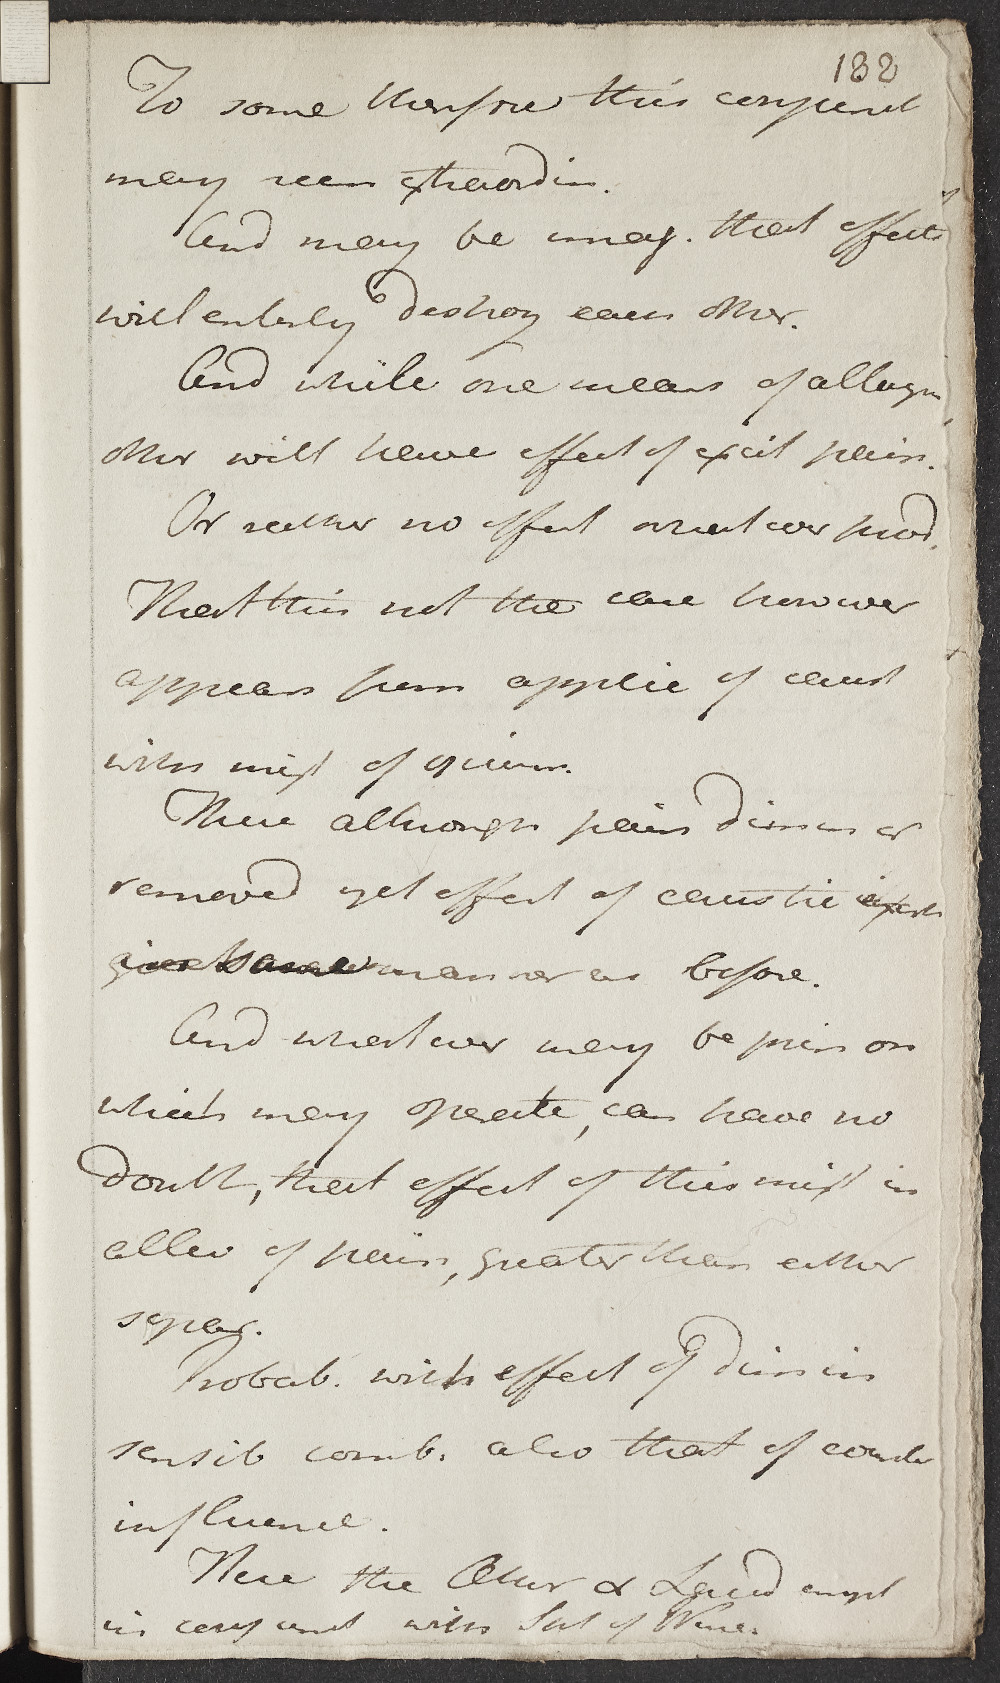 188
To some therefore this conjunct
may seem extraordin.
And may be imag. that effects
will entirely destroy each other.
And while one means of allayin
other will have effect of excit pain.
Or rather no effect whatever prod.
That this not the case however
appears from applic of caust
with mixt of opium.
There although pain dimin or
removed yet effect of caustic
manner as before.
And whatever may be prin on
which may operate, can have no
doubt, that effect of this mixt in
allev of pain, greater than either
separ.
Probab. with effect of dimin
sensib comb. also that of counter
influence.
Here the Ether & Liquid empl
in conjunct with Sp of Wine.